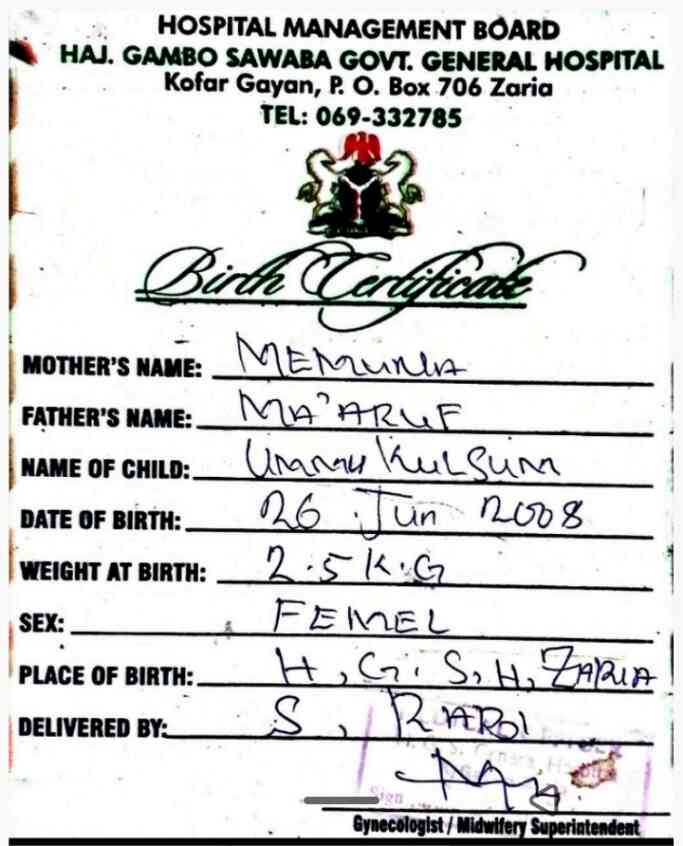 HOSPITAL MANAGEMENT BOARD
HAJ. GAMBO SAWABA GOVT. GENERAL HOSPITAL
Kofar Gayan, P. O. Box 706 Zaria
TEL: 069-332785
Birth Certificate
MOTHER'S NAME: MEMUNA
FATHER'S NAME: MA'ARUF
NAME OF CHILD: Ummu KulSum
DATE OF BIRTH: 26 Jun 2008
WEIGHT AT BIRTH: 2.5 K.G
SEX: FEMEL
PLACE OF BIRTH: H, G. S, H, ZARIA
DELIVERED BY: S,
Sign
Gynecologist / Midwifery Superintendent